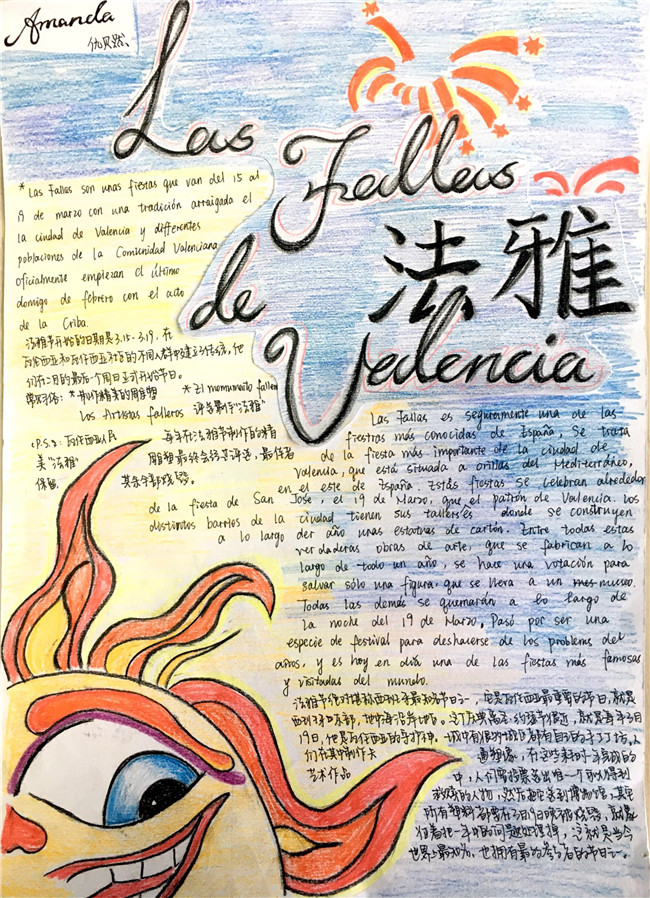 Amanda
仇贝然
Las Fallas
法雅
de Valencia
* Las Fallas son unas fiestas que van del 15 al
19 de marzo con una tradición arraigada el
la ciudad de Valencia y differentes
poblaciones de la Comunidad Valenciana
oficialmente empiezan el último
domigo de febrero con el acto
de la Criba.
法雅节开始的日期是3.15-3.19. 在
瓦伦西亚和瓦伦西亚社区的不同人群中建立了传统, 他
们在二月的最后一个周日正式开始节日。
* El monumento fallero
Los Artistas falleros
每年在法雅节制作的精
雕塑最终会经过评选, 最佳者
其余全部烧毁。
<P.S.: 瓦伦西亚人民
美"法雅"
保留
Las Fallas es seguramente una de las
fiestras más conocidas de España, Se trata
de la fiesta más importante de la ciudad de
Valencia, que está situada a orillas del Mediterráneo,
en el este de España Estás fiestas se celebran alrededor
de la fiesta de San José, el 19 de Marzo, que el patrón de Valencia. Los
distintos barrios de la ciudad tienen sus talleres donde se construyen
a lo largo der año unas estatuas de cartón. Entre todas estas
verdaderas obras de arte, que se fabrican a lo
largo de todo un año, se hace una votación para
salvar sólo una figura, que se lleva a un museo.
Todas las demás se quemarán a lo largo de
la noche del 19 de Marzo, Pasó por ser una
especie de festival para deshacerse de los problemas del
años, y es hoy en día una de las fiestas más famosas
y visitadas del mundo.
法雅节绝对堪称西班牙最知名节日之一, 它是瓦伦西亚最重要的节日, 就是
西班牙东部, 地中海沿岸地区。
19日, 他是瓦伦西亚的守护神. 城中有很多地区都有自己的手工作坊, 人
们在其中制作卡
艺术作品
中, 人们需投票选出唯一个可以得到
救赎的人物, 然后把它送到博物馆, 其它
所有塑料都要在3月19日晚被烧毁,
世界上最知名, 也拥有最多参与者的节日之一。